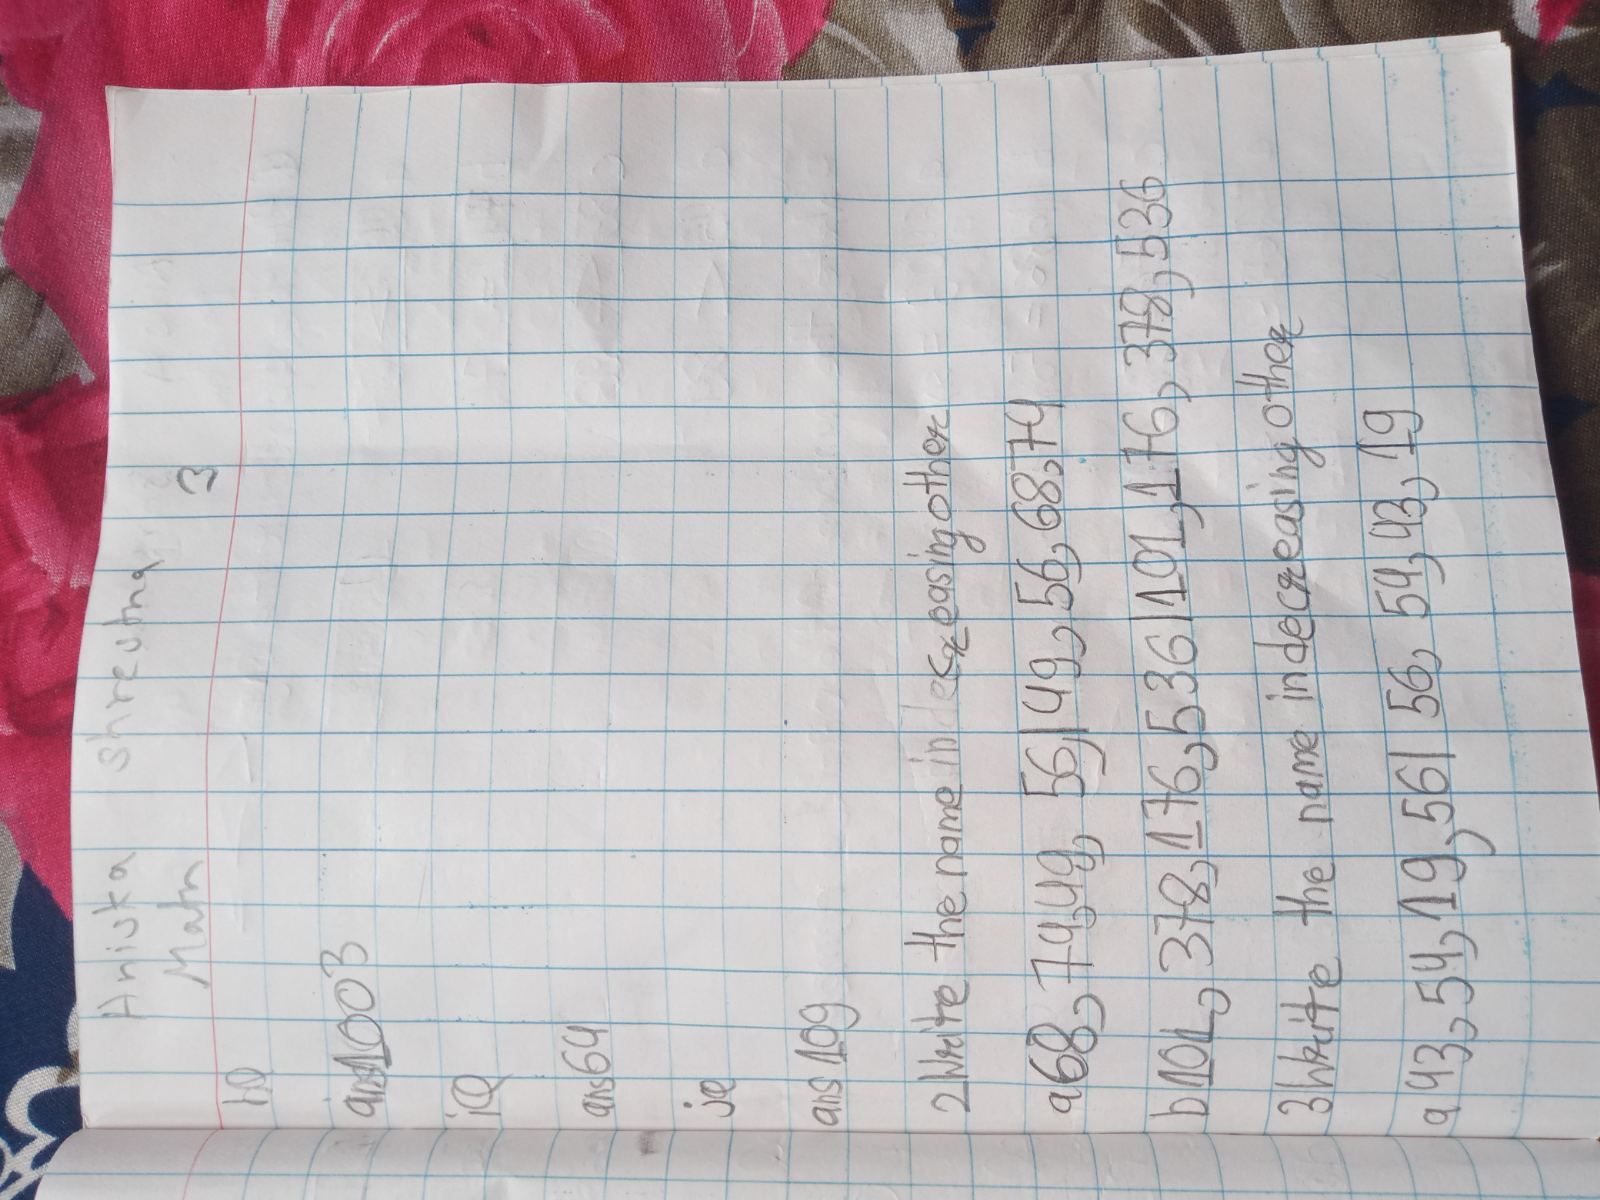 Aniska Shrestha
Math 3
hQ
ans1003
iQ
ans64
jQ
ans109
2Write the name in decreasing other
a68, 74,49, 56,|49, 56, 68,74
b101, 378, 176, 536|101, 176, 378, 536
3Write the name in decreasing other
a43, 54, 19, 56| 56, 54, 43, 19